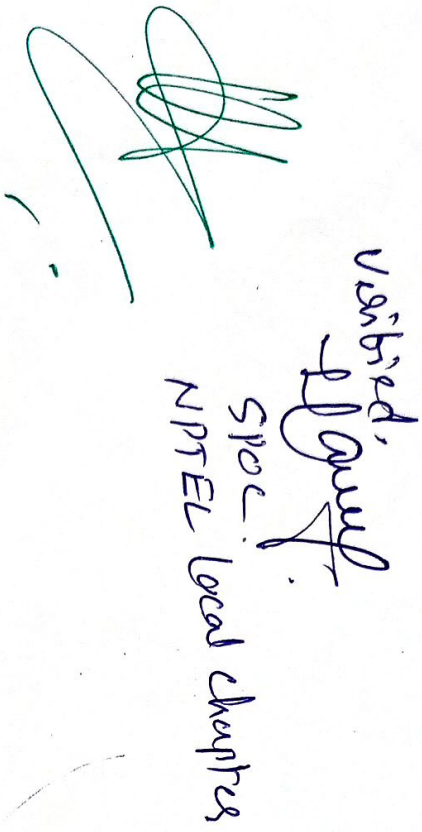 Verified,
SPOC.
NPTEL Local chapter